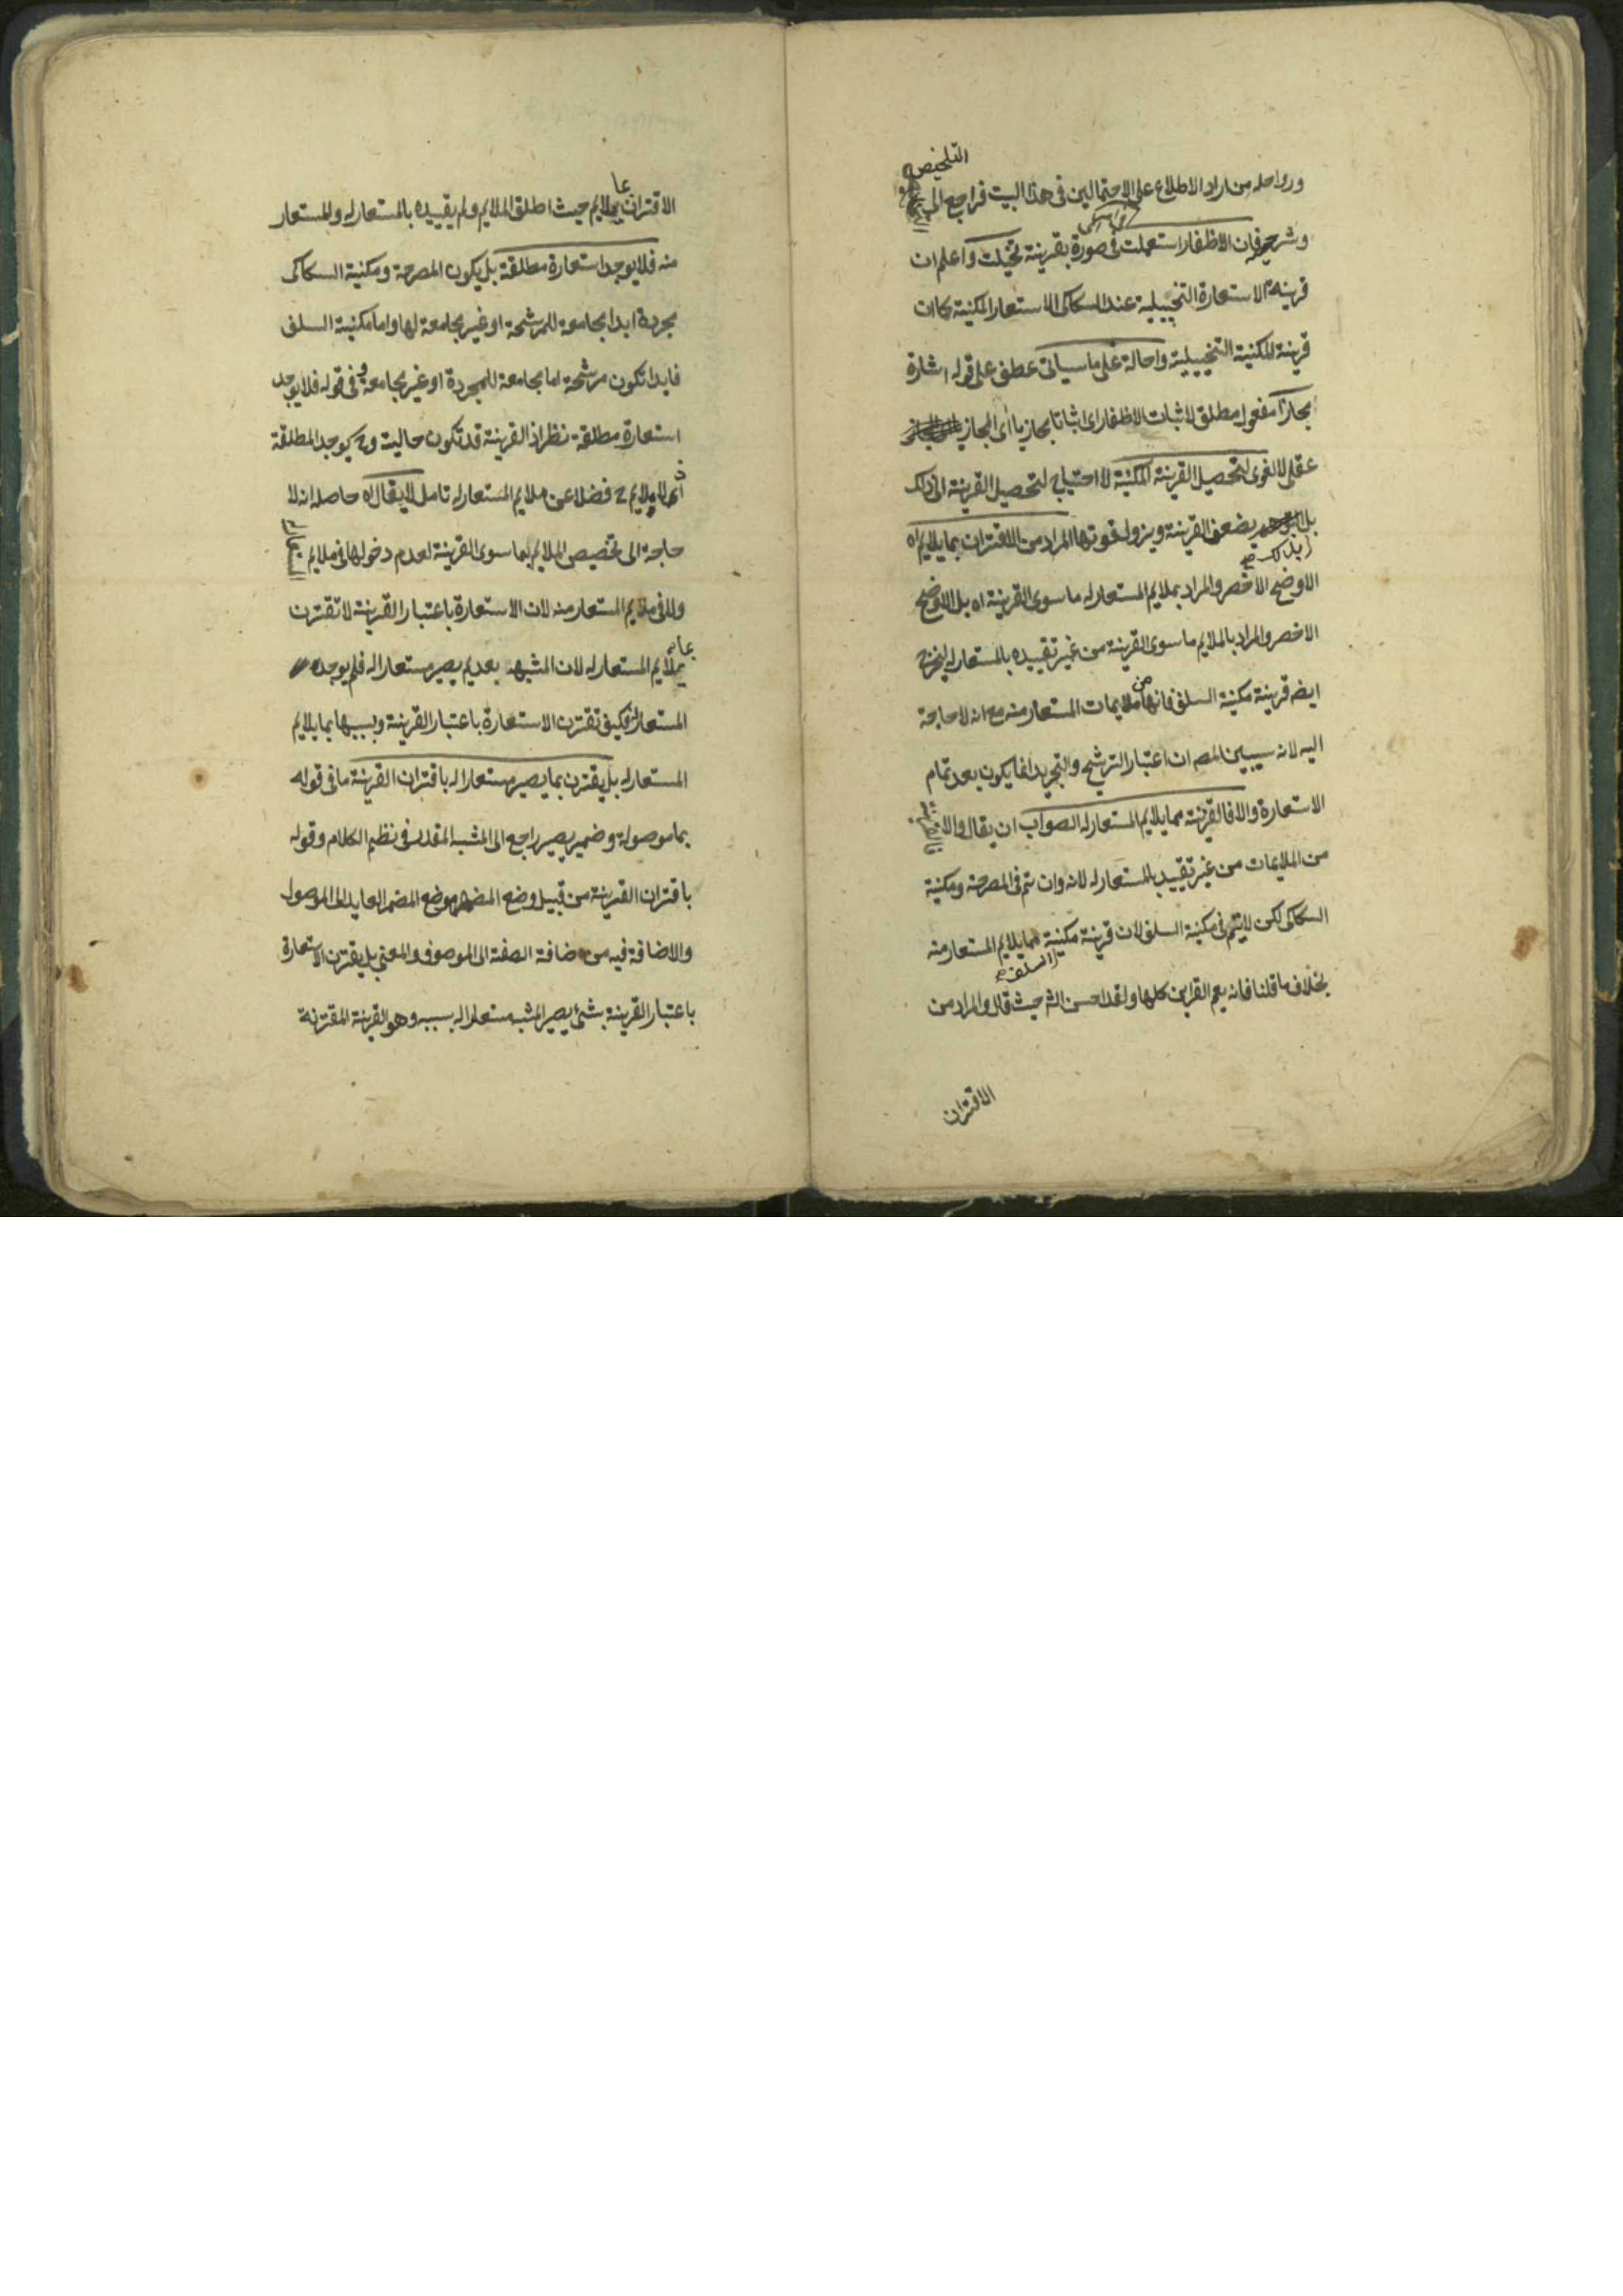 التلخيص
ورواحله من اراد الاطلاع على الاحتمالين فى هذا البيت فراجع الى
وشرحه فان الاظفار استعملت فى صورة بقرينة تخيلت واعلم ان
قرينة الاستعارة التخييلية عند السكاكى الاستعار المكنية كما ان
قرينة المكنية التخييلية واحالة على ما سياتى عطف على قوله اشارة
مجازا مفعول مطلق لاثبات الاظفار اى اثباتا مجازيا اى المجاز
عقلى لا لغوى لتحصيل القرينة المكنية لا احتياج لتحصيل القرينة الى ذلك
بل يضعف القرينة ويزول قوتها المراد من الاقتران بما يلايم اه
بذلك صح
الاوضح الاخصر والمراد بملايم المستعار له ما سوى القرينة اه بل الاوضح
الاخصر والمراد بالملايم ما سوى القرينة من غير تقييده بالمستعار له ليخرج
ايضه قرينة مكنية السلف فانها من ملايمات المستعار منه مع انه لا حاجة
اليه لانه سيبين المص ان اعتبار الترشيح والتجريد انما يكون بعد تمام
الاستعارة والا فالقرينة مما يلايم المستعار له الصواب ان يقال والا فالقرينة
من الملايمات من غير تقييد بالمستعار له لانه وان تم فى المصرحة ومكنية
السكاكى لكن لا يتم فى مكنية السلف لان قرينة مكنية السلف مما يلايم المستعار منه
بخلاف ما قلنا فانه يعم القراين كلها ولقد احسن الش حيث قال والمراد من
الاقتران
الاقتران بملايم حيث اطلق الملايم ولم يقييده بالمستعار له والمستعار
منه فلا يوجد استعارة مطلقة بل يكون المصرحة ومكنية السكاكى
مجردة ابدا مجامعة للمرشحة او غير مجامعة لها واما مكنية السلف
فابدا تكون مرشحة اما مجامعة للمجردة او غير مجامعة وفى قوله فلا يوجد
استعارة مطلقة نظر اذ القرينة قد تكون حالية وح يوجد المطلقة
اذ لا ملايم ح فضلا عن ملايم المستعار له تامل لا يقال اه حاصله انه لا
حاجة الى تخصيص الملايم بما سوى القرينة لعدم دخولها فى ملايم المستعار له
ولا فى ملايم المستعار منه لان الاستعارة باعتبار القرينة لا تقترن
بملايم المستعار له لان المشبه بعد لم يصير مستعارا له فلم يوجد
المستعار له فكيف تقترن الاستعارة باعتبار القرينة وبسببها بما يلايم
المستعار له بل يقترن بما يصير مستعارا له باقتران القرينة ما فى قوله
بما موصولة وضمير يصير راجع الى المشبه المقدر فى نظم الكلام وقوله
باقتران القرينة من قبيل وضع المظهر موضع المضمر العايد الى الموصول
والاضافة فيه من اضافة الصفة الى الموصوف والمعنى بل يقترن الاستعارة
باعتبار القرينة بشئ يصير المشبه مستعارا له بسببه وهو القرينة المقترنة